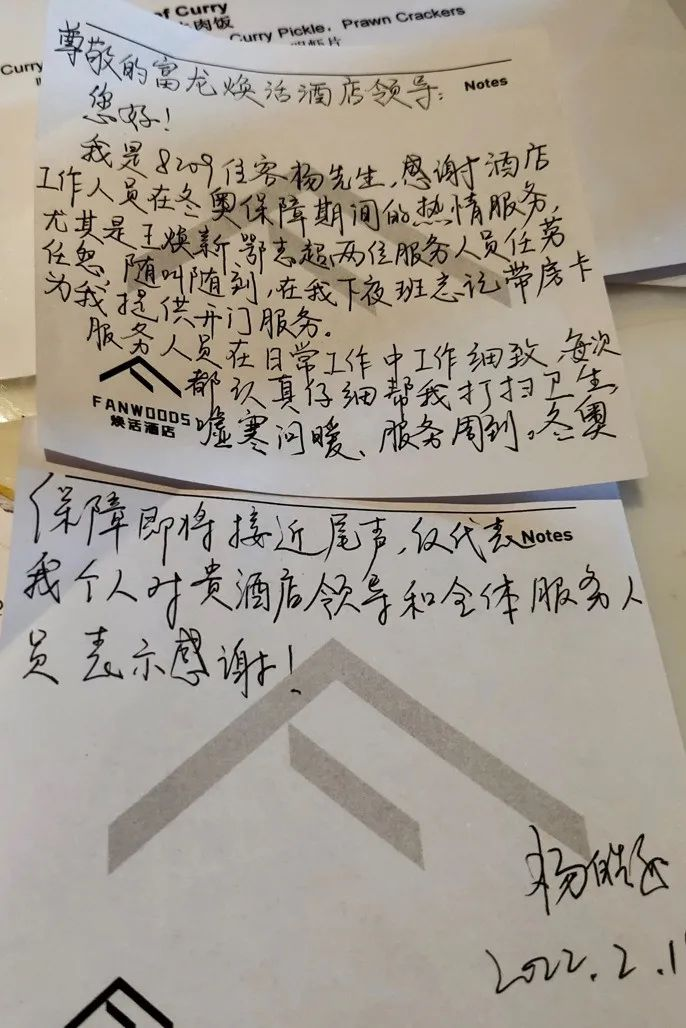 of Curry
肉饭
Curry Pickle, Prawn Crackers
虾片
Curry
Notes
尊敬的富龙焕活酒店领导:
您好!
我是8209住客杨先生,感谢酒店
工作人员在冬奥保障期间的热情服务,
尤其是王焕新、鄂志超两位服务人员任劳
任怨,随叫随到,在我下夜班忘记带房卡
为我提供开门服务。
服务人员在日常工作中工作细致,每次
都认真仔细帮我打扫卫生,
FANWOODS
焕活酒店
嘘寒问暖、服务周到。冬奥
保障即将接近尾声,仅代表
Notes
我个人对贵酒店领导和全体服务人
员表示感谢!
杨
2022.2.1